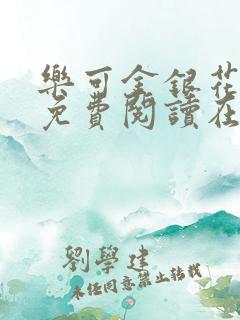 樂可金銀花
免費閱讀在
劉學建
未經同意禁止轉載